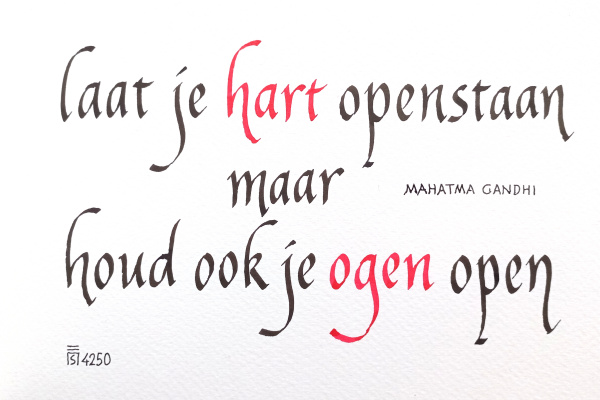 laat je hart openstaan
maar
MAHATMA GANDHI
houd ook je ogen open
4250